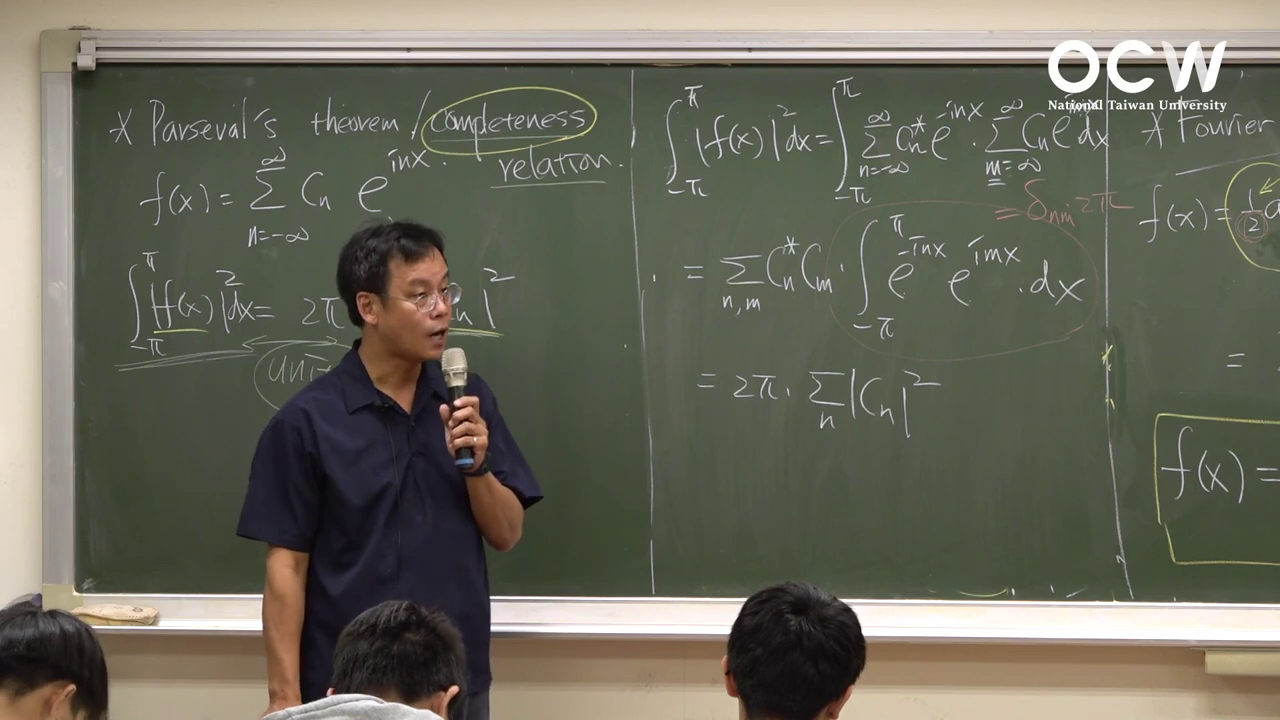 OCW
National Taiwan University
* Parseval's theorem / completeness relation.
f(x) = ∑_{n=-∞}^{∞} C_n e^{inx}.
∫_{-π}^{π} |f(x)|^2 dx = 2π n|^2
∫_{-π}^{π} |f(x)|^2 dx = ∫_{-π}^{π} ∑_{n=-∞}^{∞} C_n^* e^{-inx} · ∑_{m=-∞}^{∞} C_n e dx
= δ_{nm} 2π
= ∑_{n,m} C_n^* C_m · ∫_{-π}^{π} e^{-inx} e^{imx} · dx
= 2π · ∑_n |C_n|^2
* Fourier
f(x) = 1/2
=
f(x) =